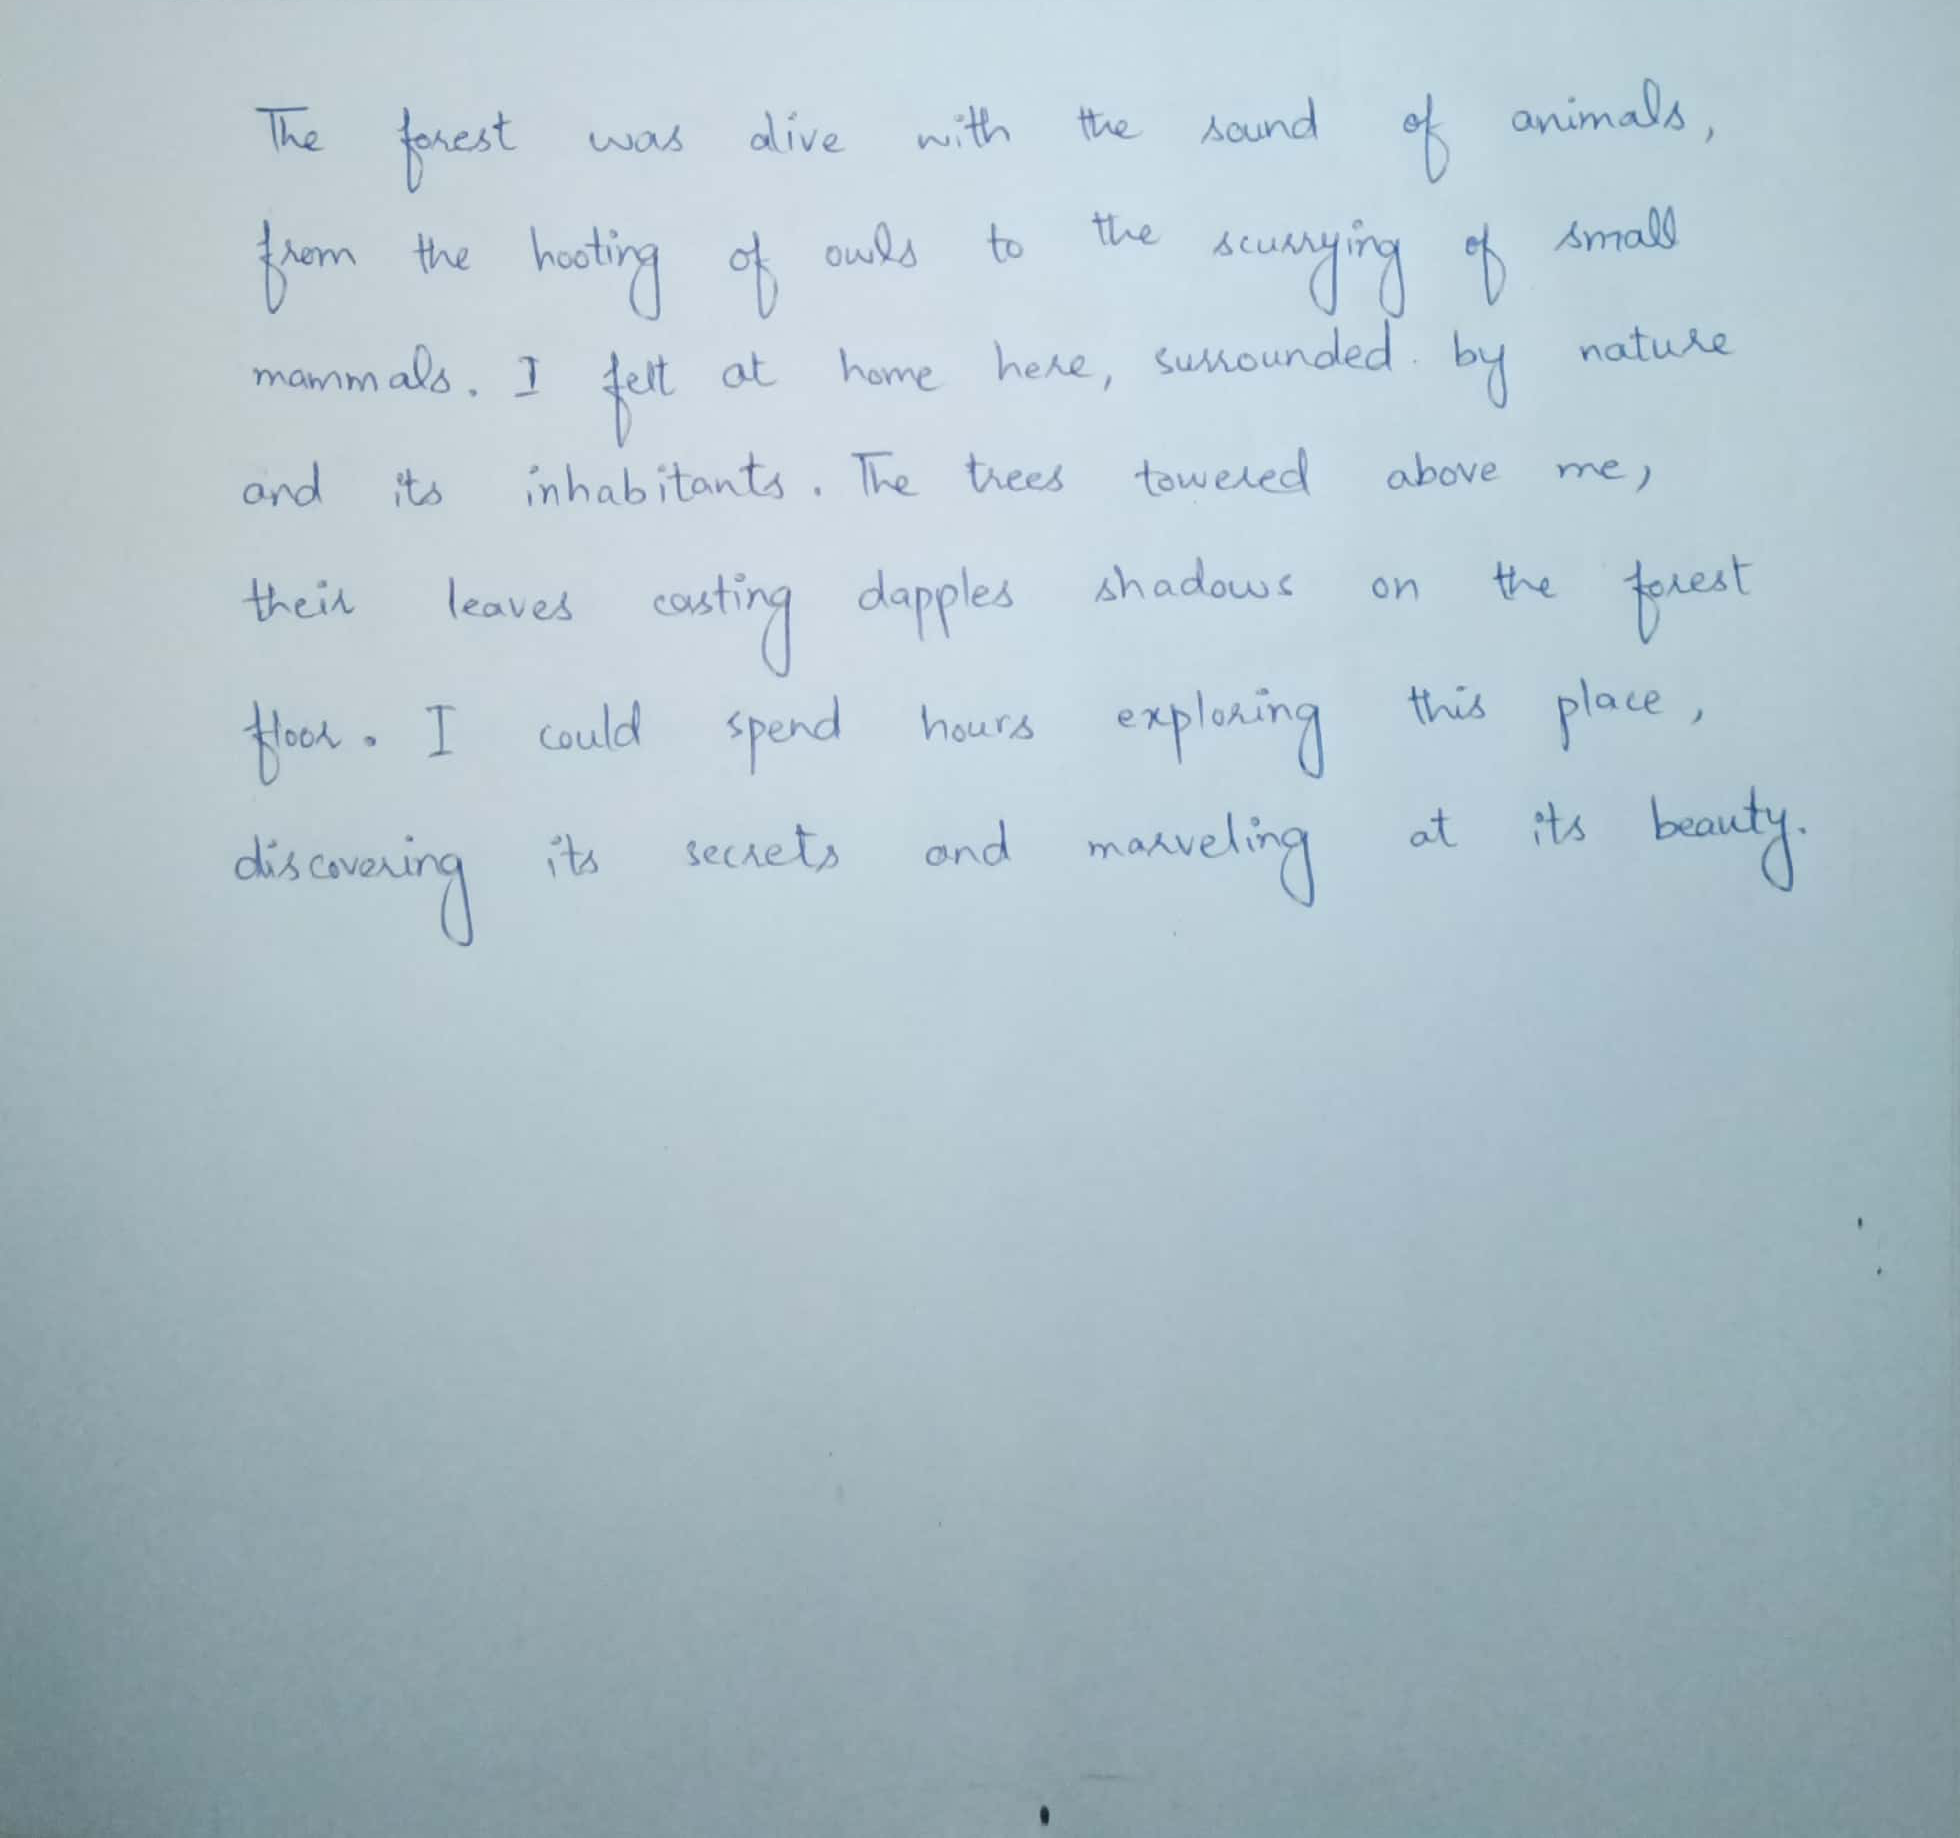 The forest was alive with the sound of animals,
from the hooting of owls to the scurrying of small
mammals. I felt at home here, surrounded by nature
and its inhabitants. The trees towered above me,
their leaves casting dapples shadows on the forest
floor. I could spend hours exploring this place,
discovering its secrets and marveling at its beauty.